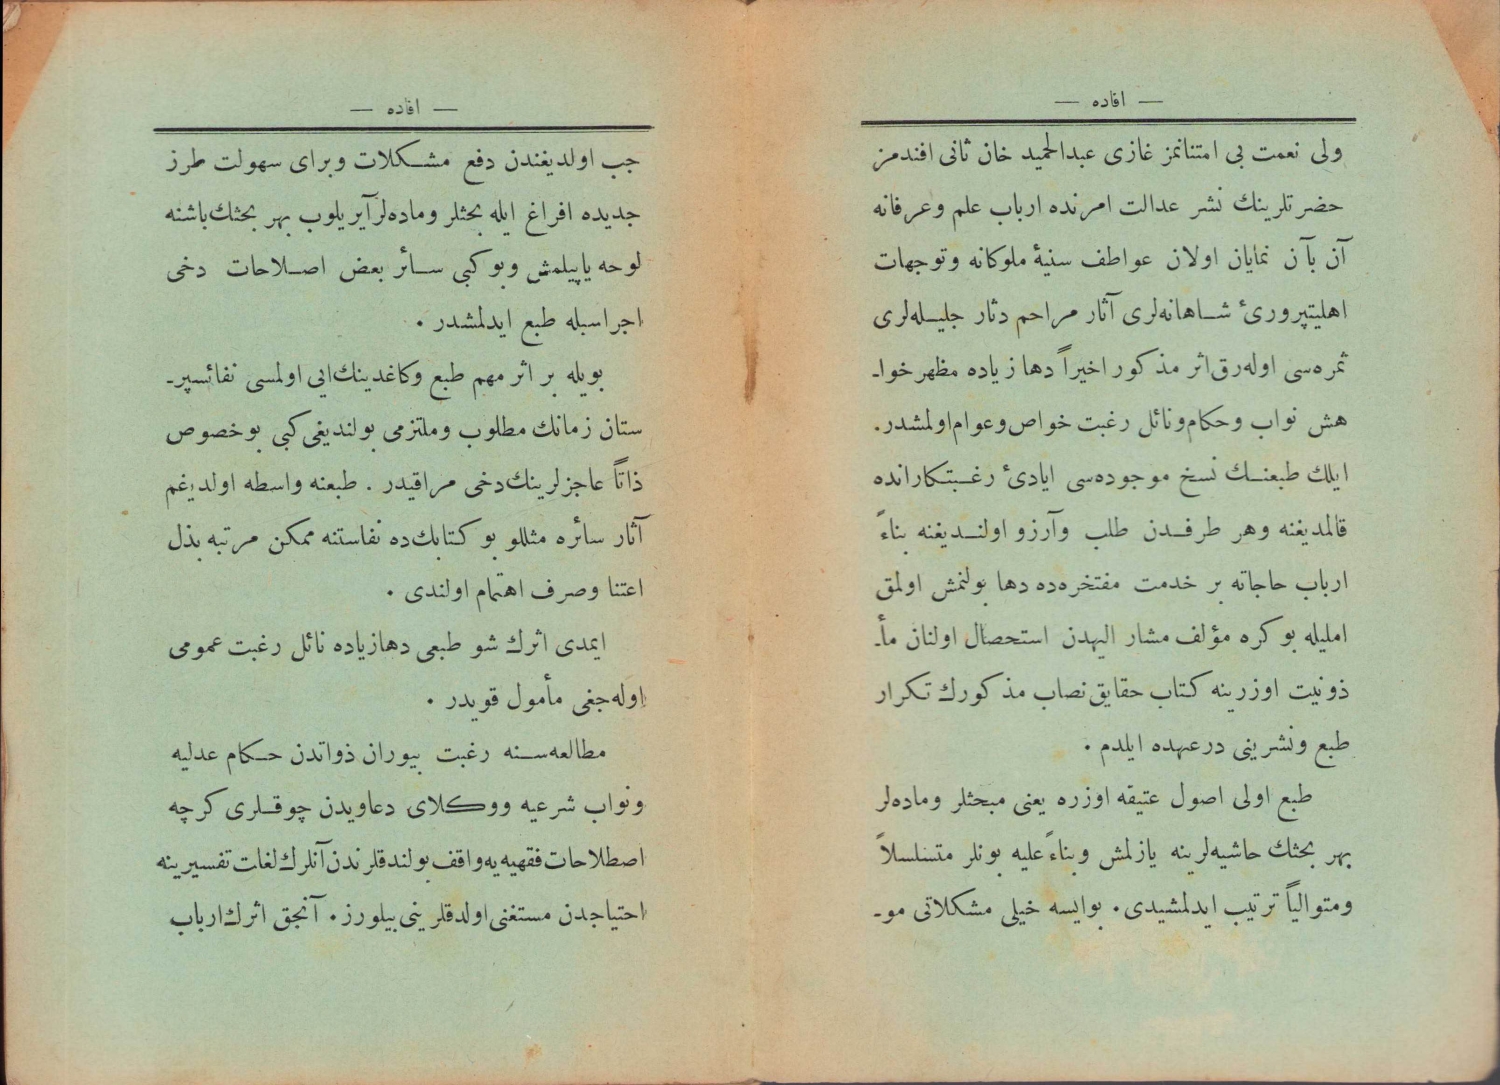 — افاده —
ولی نعمت بی امتنانمز غازی عبدالحمید خان ثانی افندمز
حضرتلرینك نشر عدالت امرنده ارباب علم وعرفانه
آن بآن نمایان اولان عواطف سنیهٔ ملوكانه وتوجهات
اهلیتپروریٔ شاهانه‌لری آثار مراحم دثار جلیله‌لری
ثمره‌سی اوله‌رق اثر مذكور اخیراً دها زیاده مظهر خوا-
هش نواب وحكام ونائل رغبت خواص وعوام اولمشدر.
ایلك طبعنك نسخ موجوده‌سی ایادیٔ رغبتكارانده
قالمدیغنه وهر طرفدن طلب وآرزو اولندیغنه بناءً
ارباب حاجاته بر خدمت مفتخره‌ده دها بولنمش اولمق
املیله بو كره مؤلف مشار الیهدن استحصال اولنان مأ-
ذونیت اوزرینه كتاب حقایق نصاب مذكورك تكرار
طبع ونشرینی درعهده ایلدم .
طبع اولی اصول عتیقه اوزره یعنی مبحثلر وماده‌لر
بهر بحثك حاشیه‌لرینه یازلمش وبناءً علیه بونلر متسلسلاً
ومتوالیاً ترتیب ایدلمشیدی. بوایسه خیلی مشكلاتی مو-
— افاده —
جب اولدیغندن دفع مشكلات وبرای سهولت طرز
جدیده افراغ ایله بحثلر وماده‌لر آیریلوب بهر بحثك باشنه
لوحه یاپیلمش وبو كبی سائر بعض اصلاحات دخی
اجراسیله طبع ایدلمشدر .
بویله بر اثر مهم طبع وكاغدینك ایی اولمسی نفائسپر-
ستان زمانك مطلوب وملتزمی بولندیغی كبی بو خصوص
ذاتاً عاجزلرینك دخی مراقیدر . طبعنه واسطه اولدیغم
آثار سائره مثللو بو كتابك‌ده نفاستنه ممكن مرتبه بذل
اعتنا وصرف اهتمام اولندی .
ایمدی اثرك شو طبعی دها زیاده نائل رغبت عمومی
اوله‌جغی مأمول قویدر .
مطالعه‌سنه رغبت بیوران ذواتدن حكام عدلیه
ونواب شرعیه ووكلای دعاویدن چوقلری كرچه
اصطلاحات فقهیه‌یه واقف بولندقلرندن آنلرك لغات تفسیرینه
احتیاجدن مستغنی اولدقلرینی بیلورز. آنجق اثرك ارباب